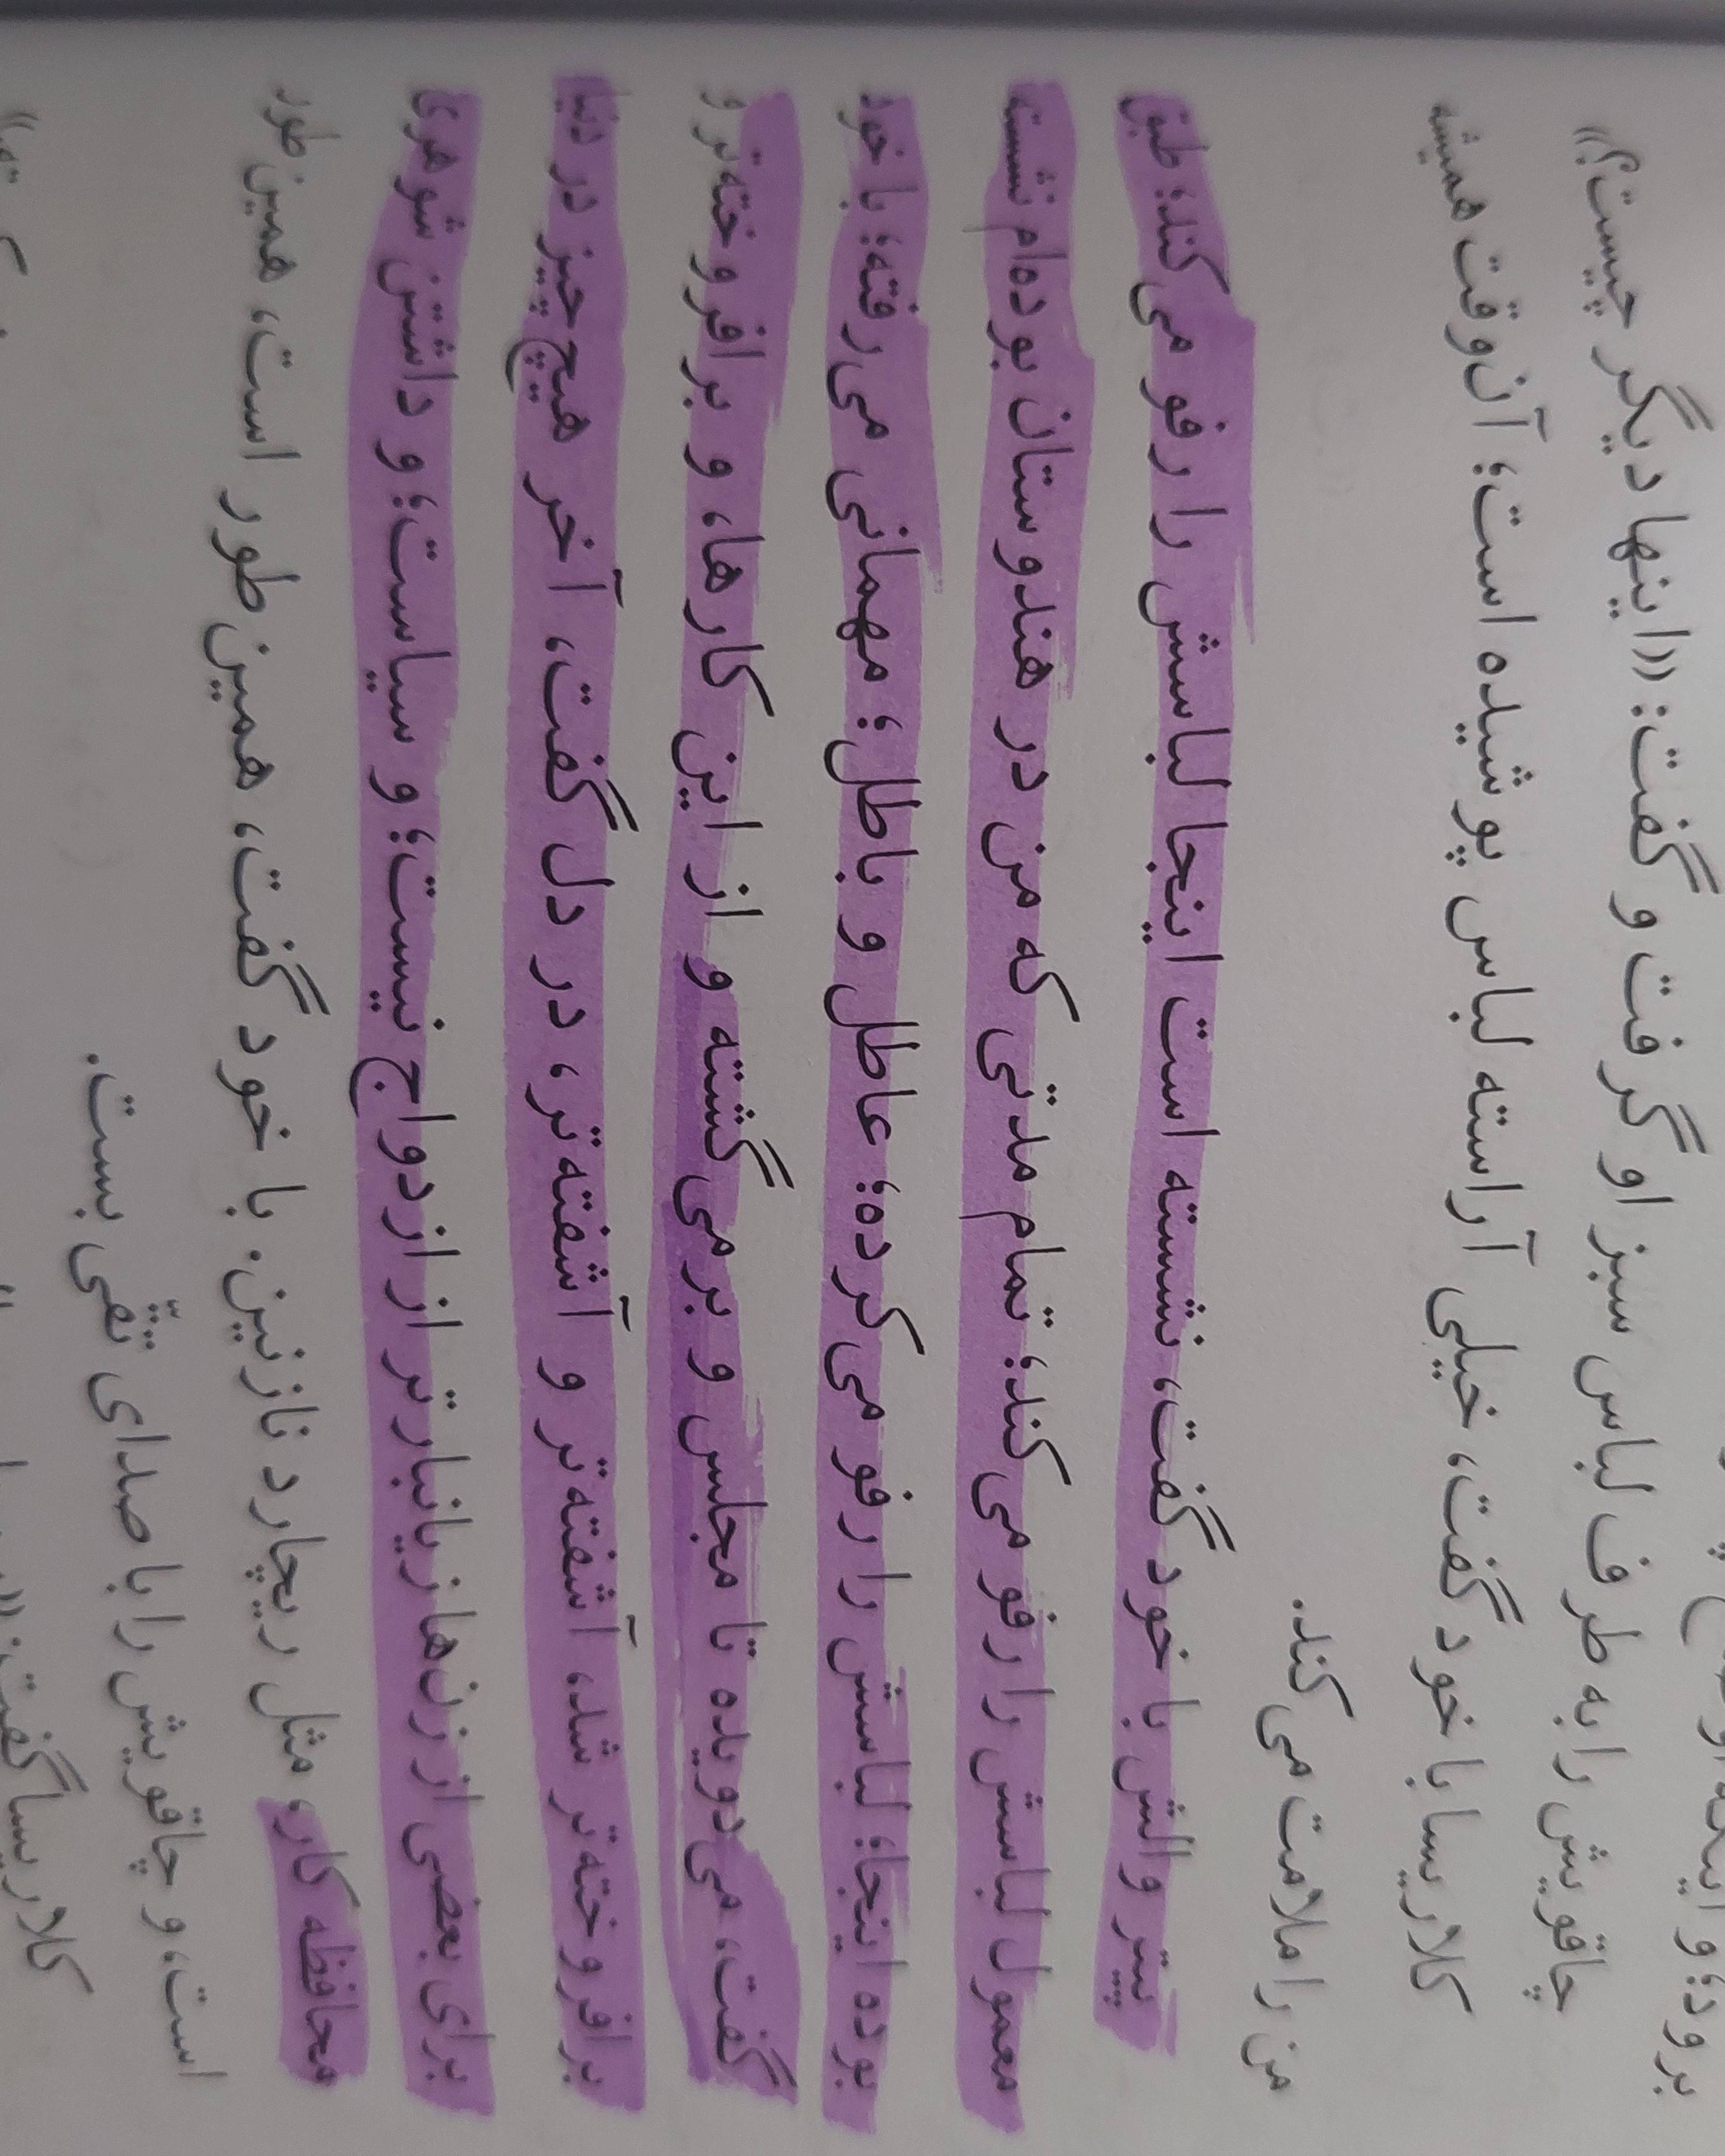 برود؛ و اینکه او
چاقویش را به طرف لباس سبز او گرفت و گفت: «اینها دیگر چیست؟»
کلاریسا با خود گفت، خیلی آراسته لباس پوشیده است؛ آن‌وقت همیشه
من را ملامت می‌کند.
پیتر والش با خود گفت، نشسته است اینجا لباسش را رفو می‌کند؛ طبق
معمول لباسش را رفو می‌کند؛ تمام مدتی که من در هندوستان بوده‌ام نشسته
بوده اینجا؛ لباسش را رفو می‌کرده؛ عاطل و باطل؛ مهمانی می‌رفته؛ با خود
گفت، می‌دویده تا مجلس و برمی‌گشته و از این کارها، و برافروخته‌تر و
برافروخته‌تر شد، آشفته‌تر و آشفته‌تر، در دل گفت، آخر هیچ‌چیز در دنیا
برای بعضی از زن‌ها زیانبارتر از ازدواج نیست؛ و سیاست؛ و داشتن شوهری
محافظه‌کار، مثل ریچارد نازنین. با خود گفت، همین‌طور است، همین‌طور
است، و چاقویش را با صدای تقّی بست.
کلاریسا گفت: